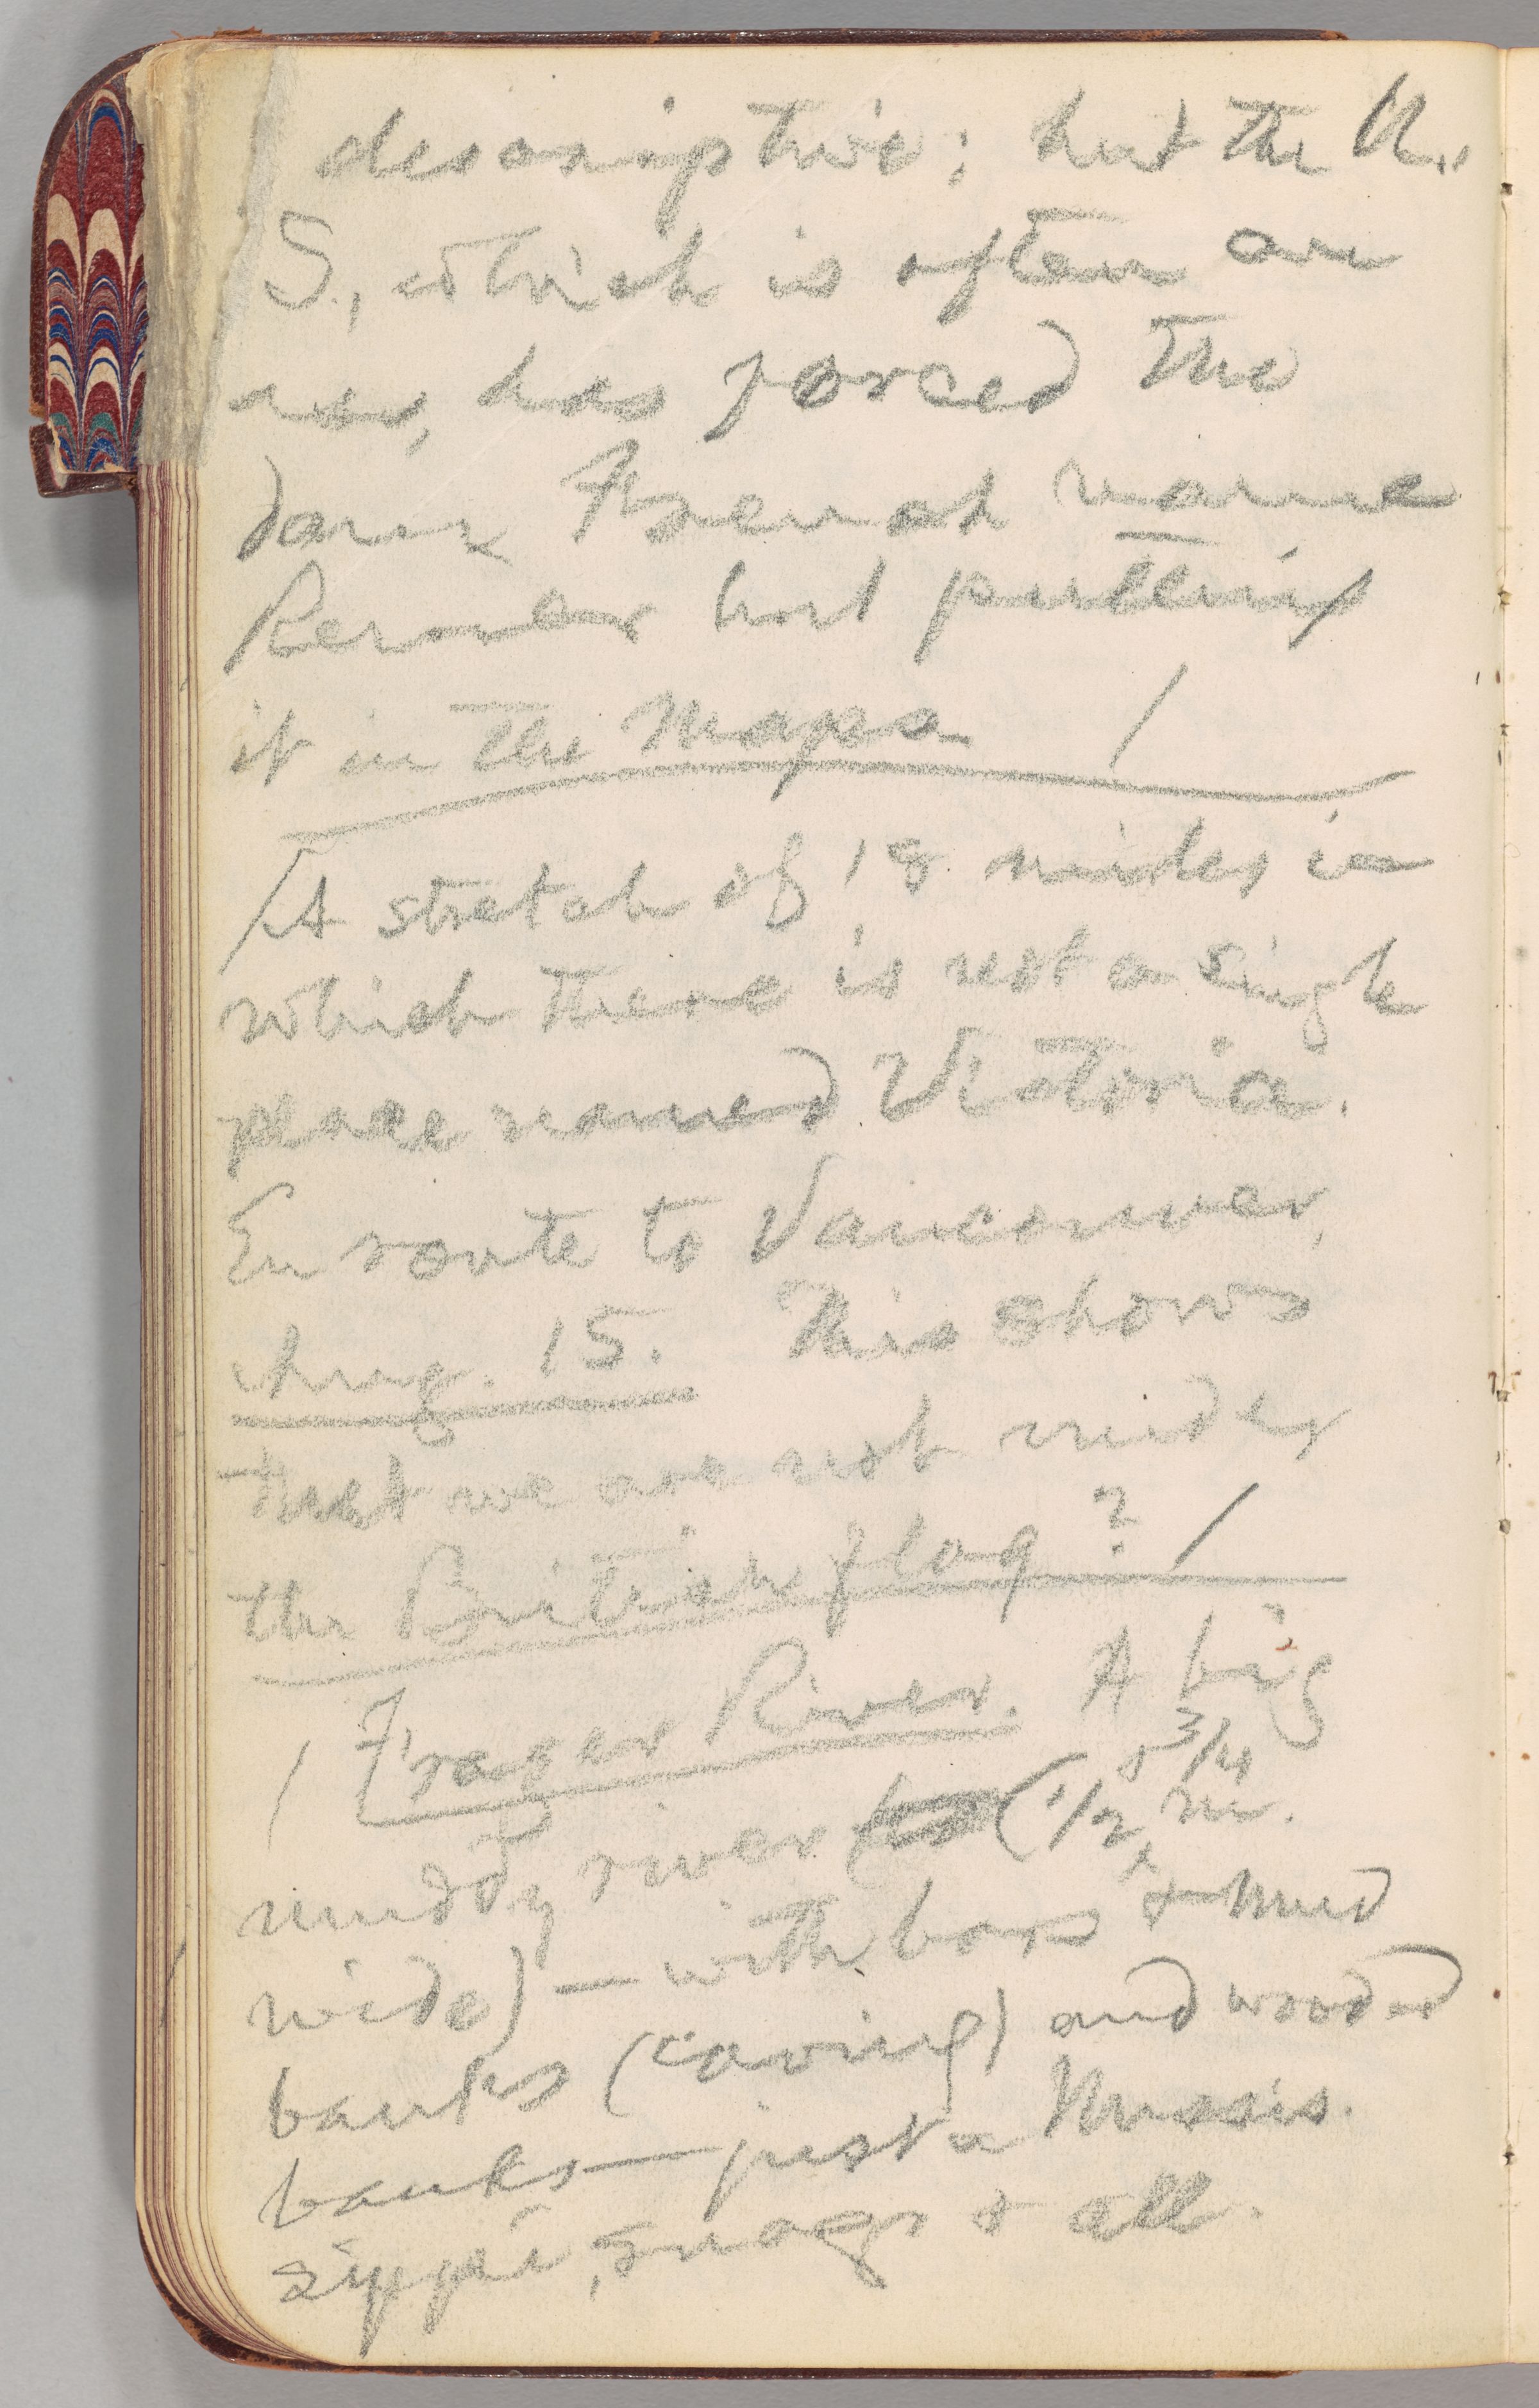 descriptive; but the U.
S., which is often an
ass, has forced the
damn French name
Rainier by putting
it in the maps. /
/ A stretch of 18 miles in
which there is not a single
place named Victoria.
En route to Vancouver,
Aug. 15. This shows
that we are not under
the British flag? /
/ Frazer River. A big
muddy river (1/2 & 3/4 m.
wide) — with bars & mud
banks (caving) and wooded
banks — just a Missis-
sippi, snags & all.